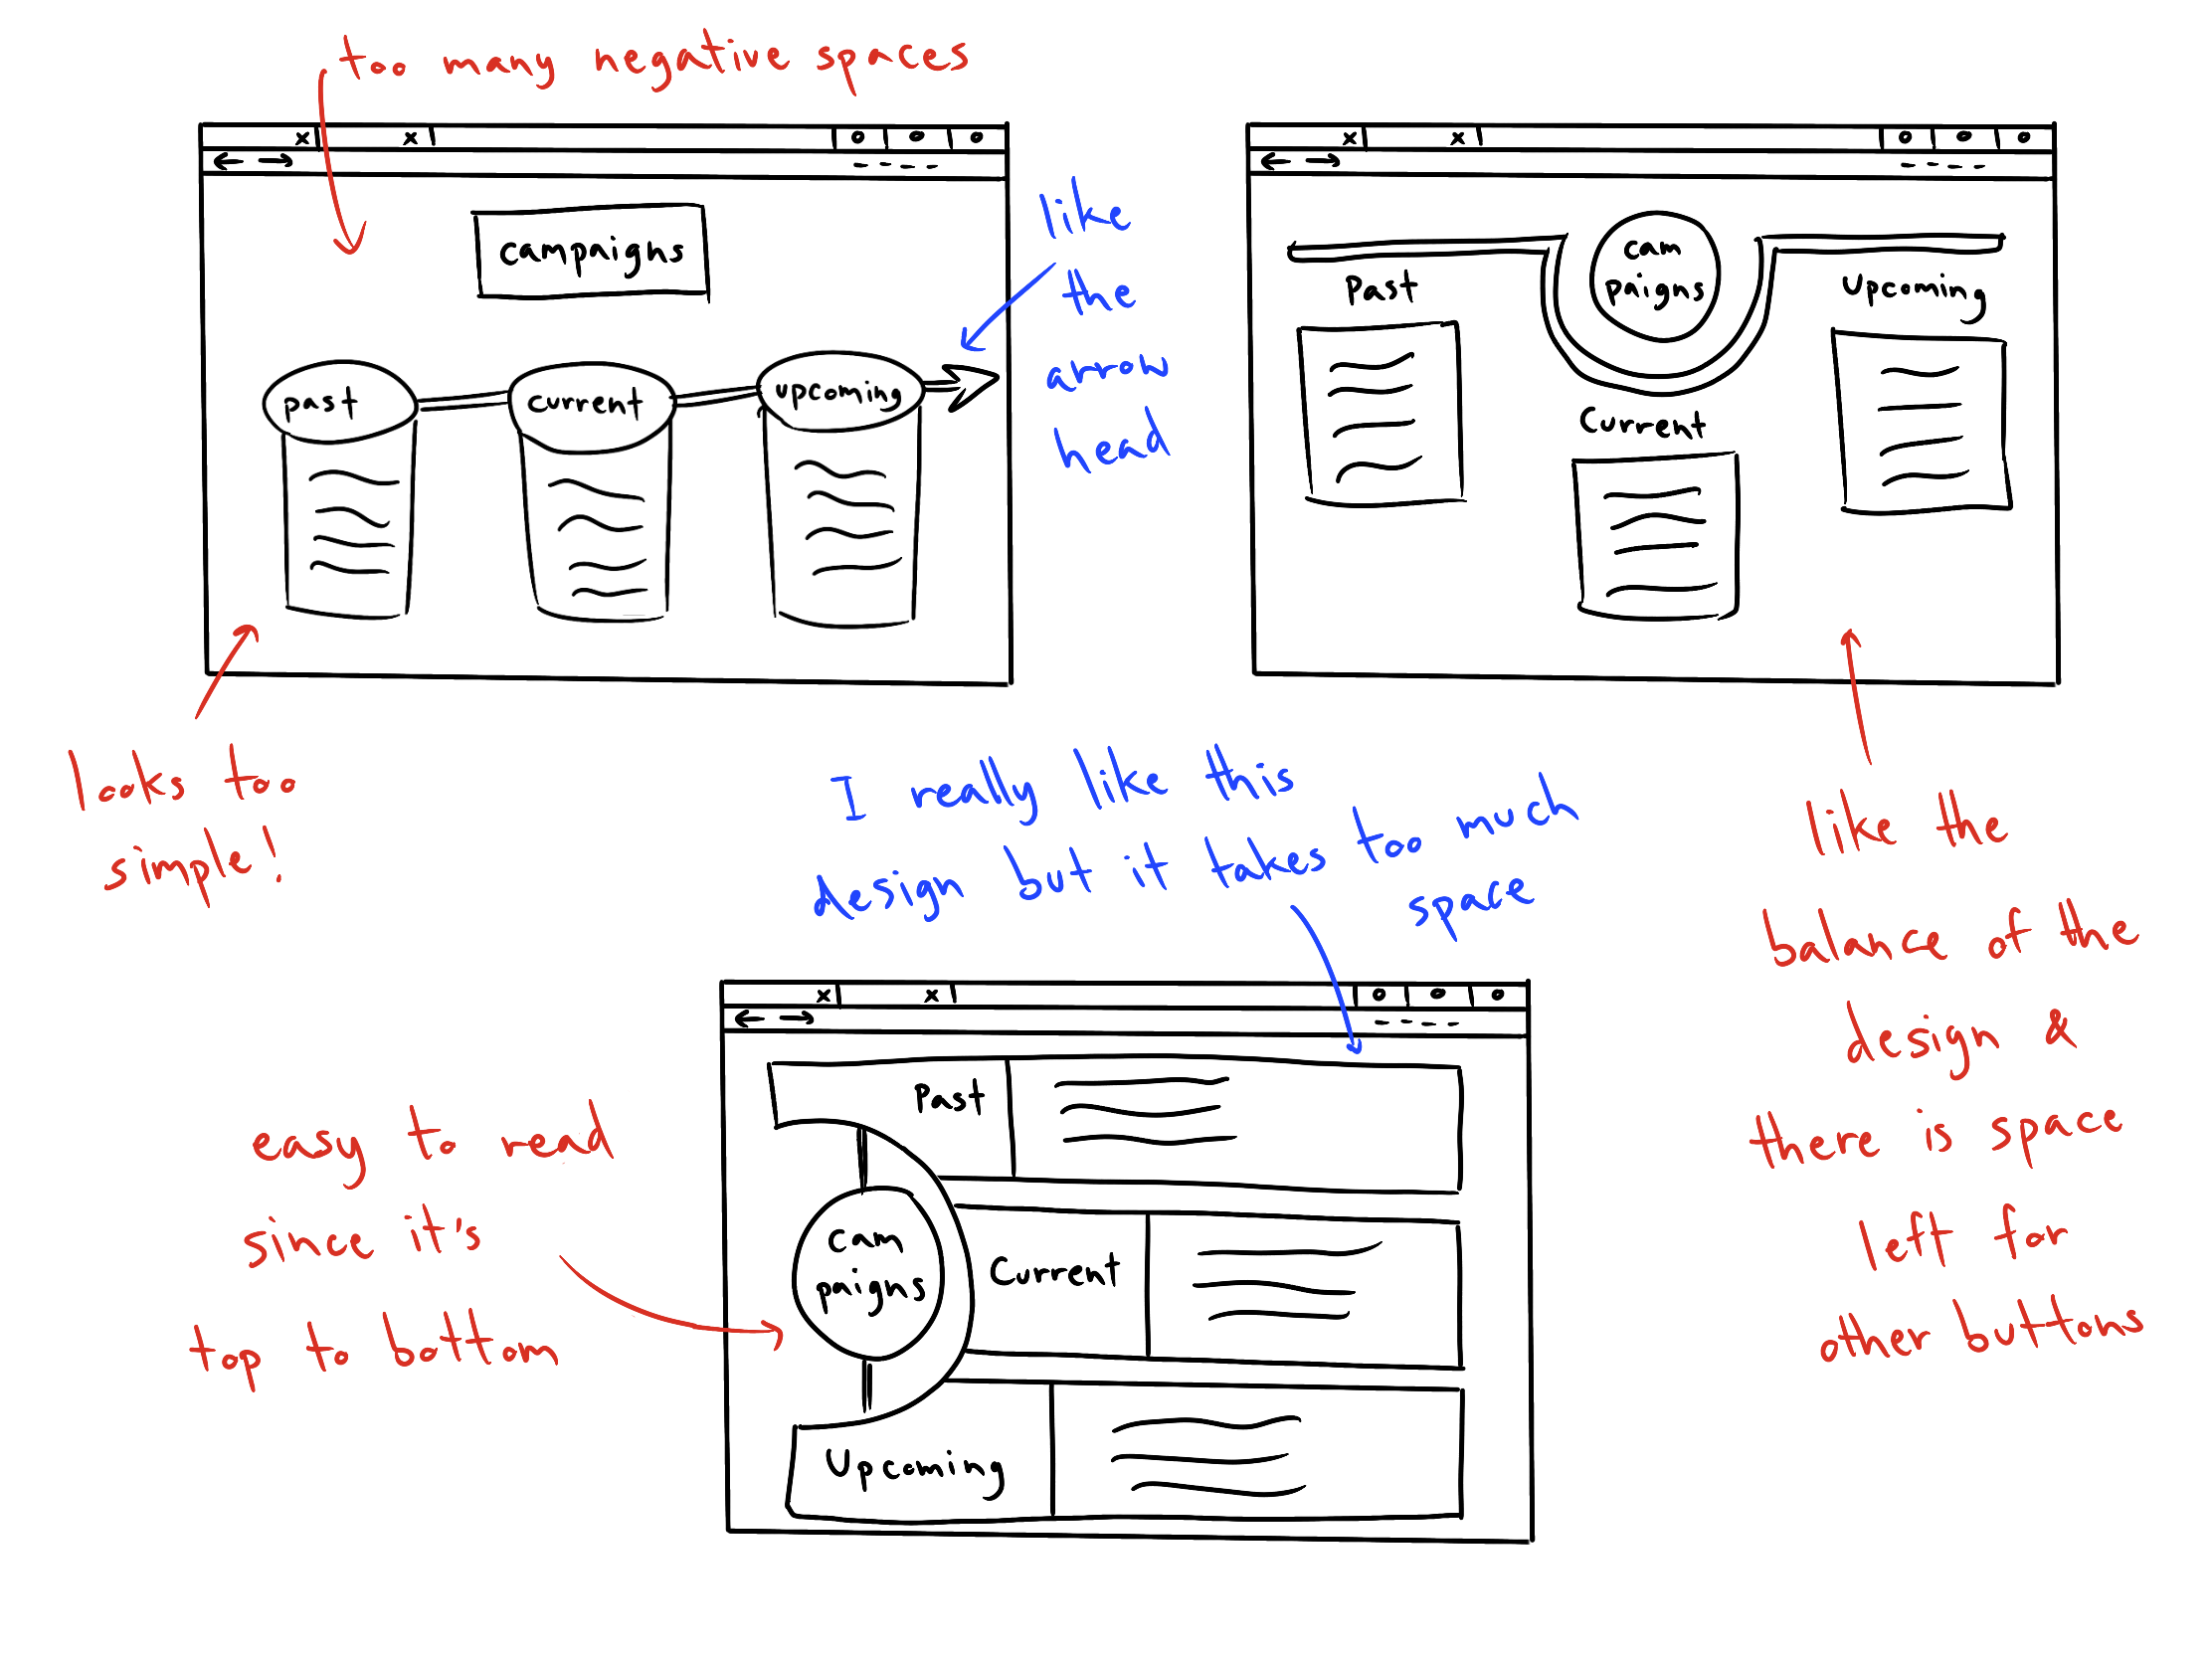 too many negative spaces
campaighs
past
current
upcoming
like
the
arrow
head
looks too
simple!
cam
paigns
Past
Upcoming
Current
like the
balance of the
design &
there is space
left for
other buttons
I really like this
design but it takes too much
space
easy to read
since it's
top to bottom
Past
cam
paigns
Current
Upcoming